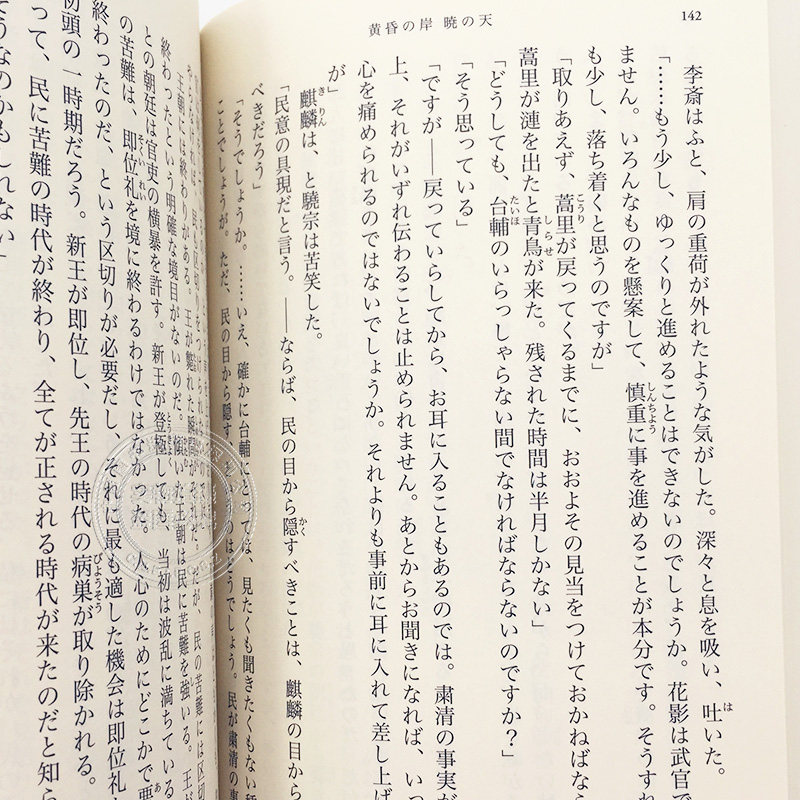 142
黄昏の岸 暁の天
李斎はふと、肩の重荷が外れたような気がした。深々と息を吸い、吐いた。
「……もう少し、ゆっくりと進めることはできないのでしょうか。花影は武官で
ません。いろんなものを懸案して、慎重に事を進めることが本分です。そうすれ
も少し、落ち着くと思うのですが」
「取りあえず、蒿里が戻ってくるまでに、おおよその見当をつけておかねばなら
蒿里が漣を出たと青鳥が来た。残された時間は半月しかない」
「どうしても、台輔のいらっしゃらない間でなければならないのですか？」
「そう思っている」
「ですが――戻っていらしてから、お耳に入ることもあるのでは。粛清の事実が
上、それがいずれ伝わることは止められません。あとからお聞きになれば、いっ
心を痛められるのではないでしょうか。それよりも事前に耳に入れて差し上げ
が」
麒麟は、と驍宗は苦笑した。
「民意の具現だと言う。――ならば、民の目から隠すべきことは、麒麟の目から
べきだろう」
「そうでしょうか。……いえ、確かに台輔にとっては、見たくも聞きたくもない
ことでしょうが。ただ、民の目から隠す、というのはどうでしょう。民が粛清の事
王朝には終わりがある。王が斃れた瞬間がそれだ。だが、民の苦難には区切
終わったという明確な境目がないのだ。傾いた王朝は民に苦難を強いる。王が
との朝廷は官吏の横暴を許す。新王が登極しても、当初は波乱に満ちている
の苦難は、即位礼を境に終わるわけではなかった。人心のためにどこかで悪
終わったのだ、という区切りが必要だし、それに最も適した機会は即位礼
初頭の一時期だろう。新王が即位し、先王の時代の病巣が取り除かれる。
って、民に苦難の時代が終わり、全てが正される時代が来たのだと知ら
そうなのかもしれない」